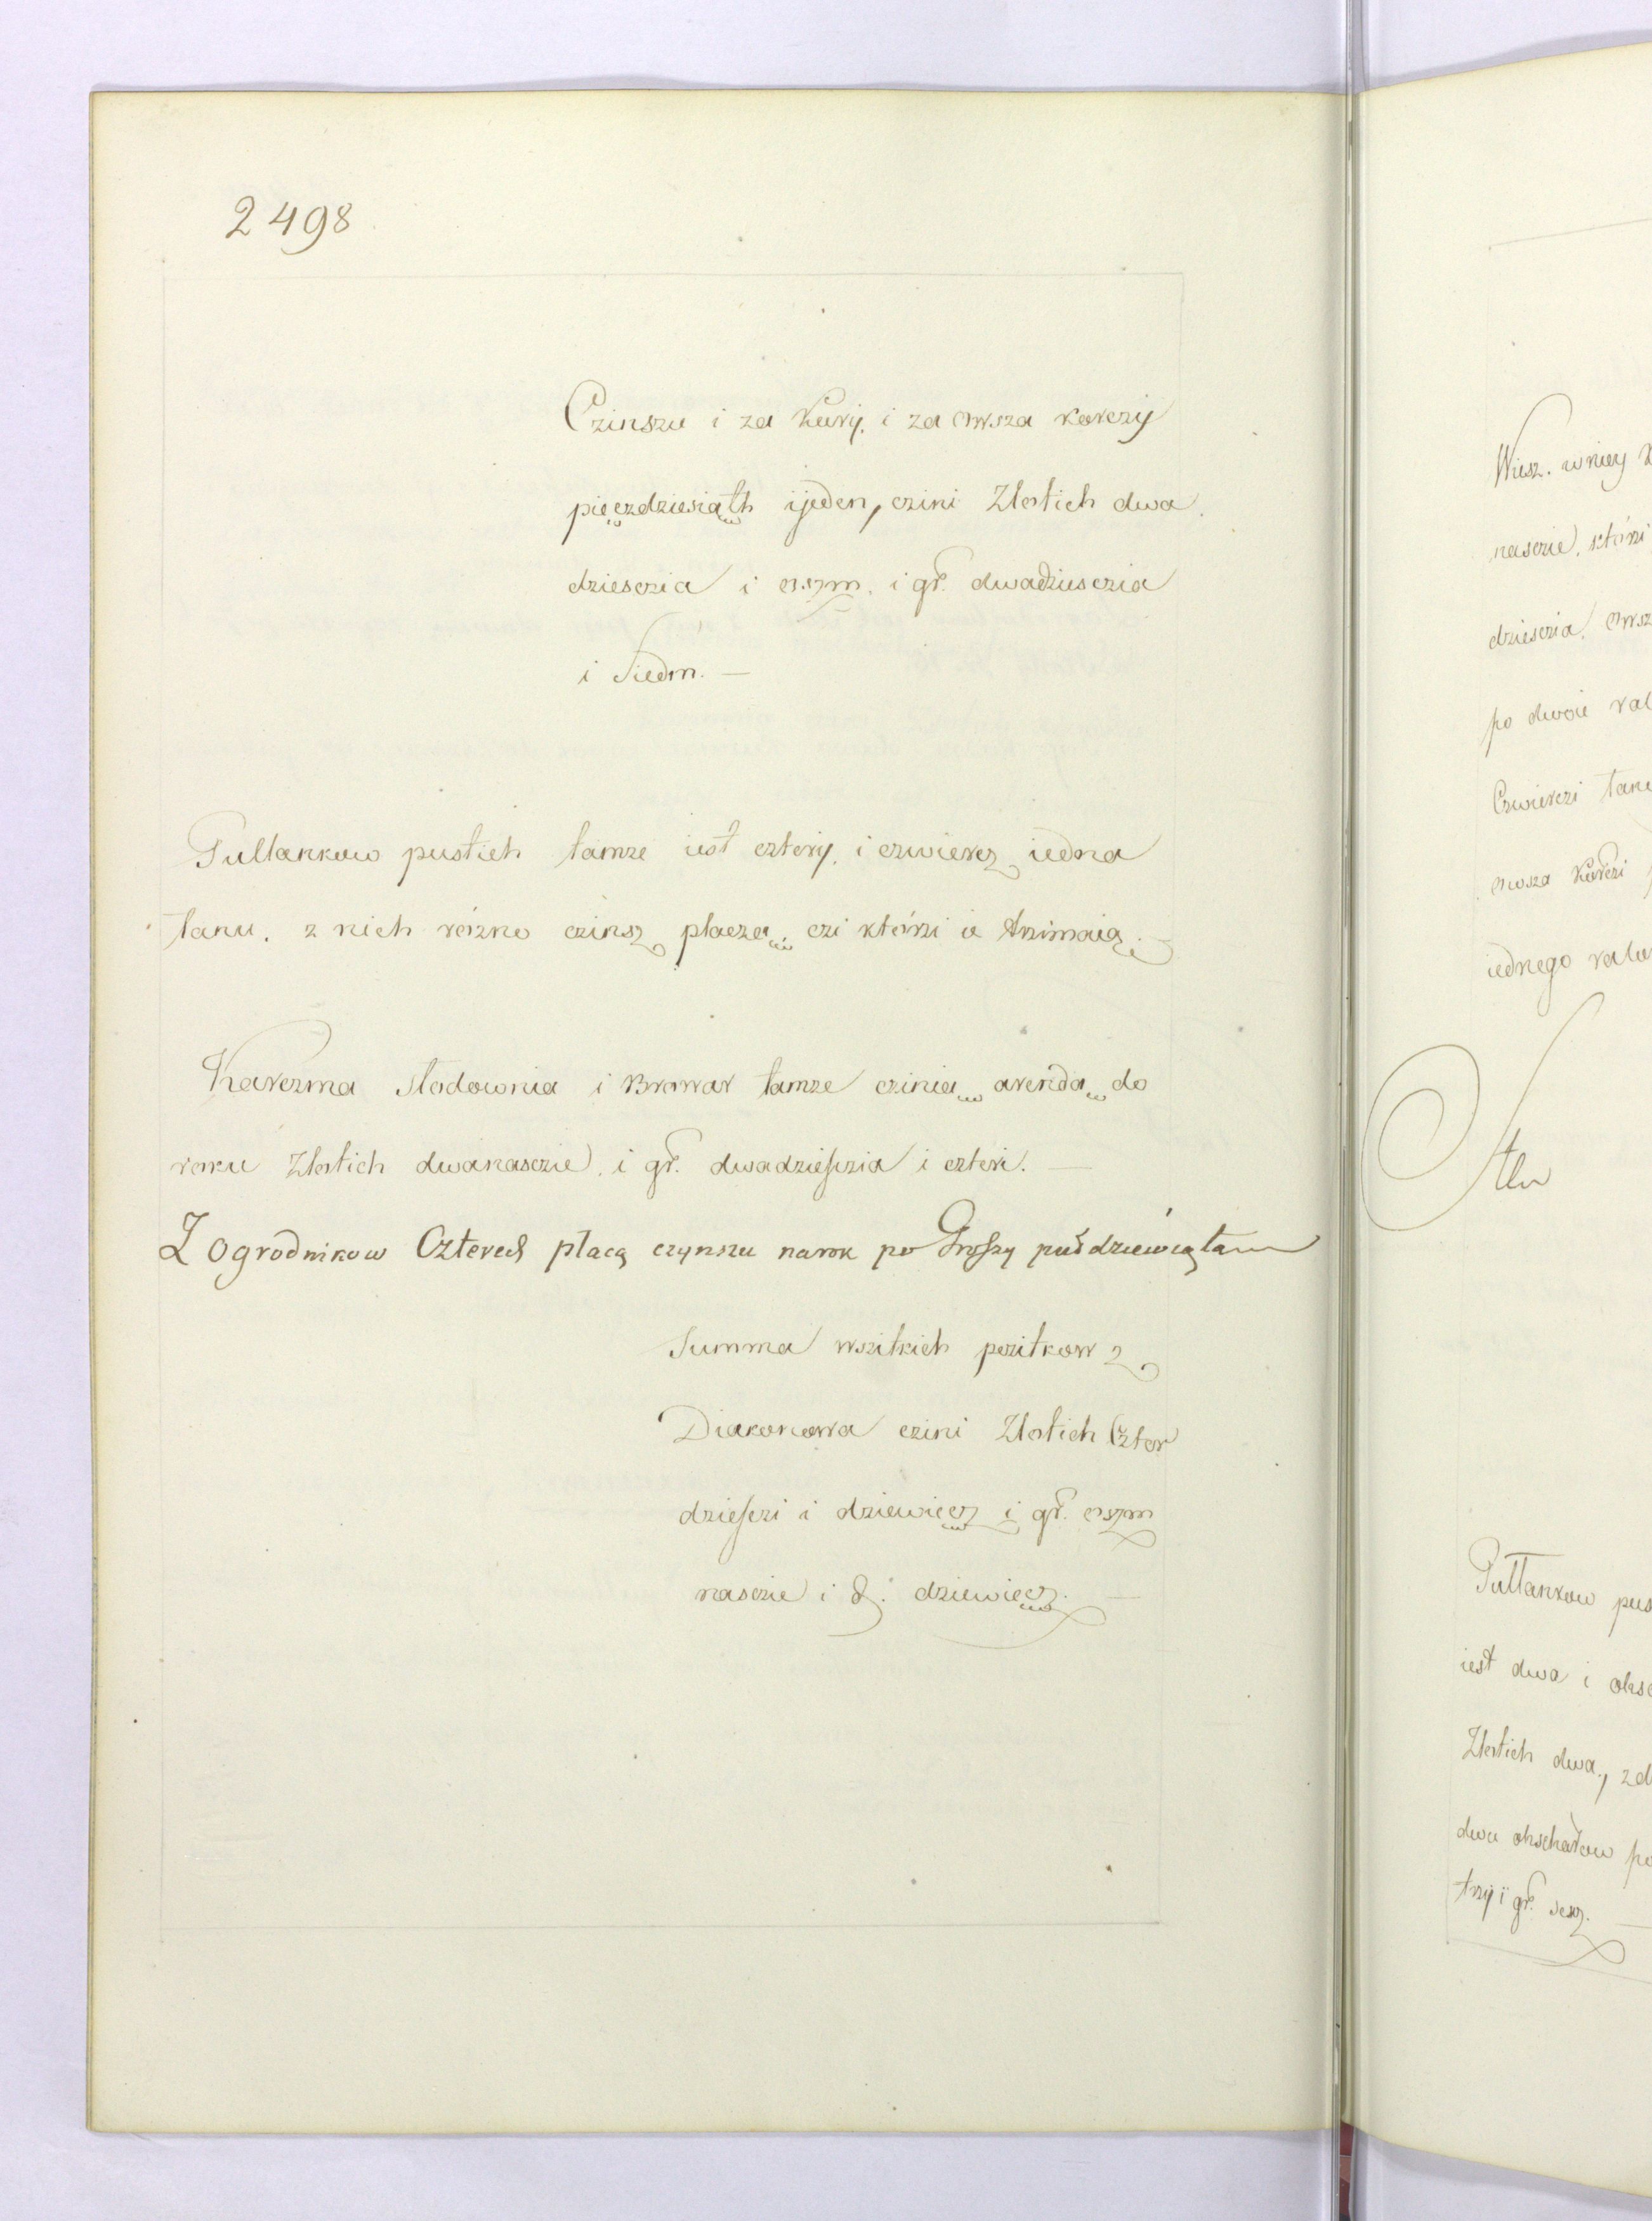 2498
Czinszu i za Kury, i za owsza korczy
pięczdziesiąth ijeden, czini Złotich dwa
dzieszia i oszm. i gr. dwadzieszia
i Siedm. —
Pułtankow pustich tamze iest cztery, i czwiercz iedna
łanu. z nich rózno czinsz płaczą, czi którzi ie trzimaią. —
Karczma Słodownia i Browar tamze czinią arendą do
roku Złotich dwanasczie, i gr. dwadzieszia i czteri. —
Z Ogrodnikow Czterech płacą czynszu narok po Groszy puł dziewiąta
Summa wszitkich pozitkow z
Diakonowa czini Złotich Czter
dzieszi i dziewięcz i gr. oszm
nasczie i d. dziewięcz. —
Wiesz. w niey
nasczie, którzi
dzieszia, owsz
po dwoie
Czwierczi łanu
owsza korczi
iednego
Pułtankow pus
iest dwa i
Złotich dwa,
dwu obschałow po
trzy i gr. sesz. —